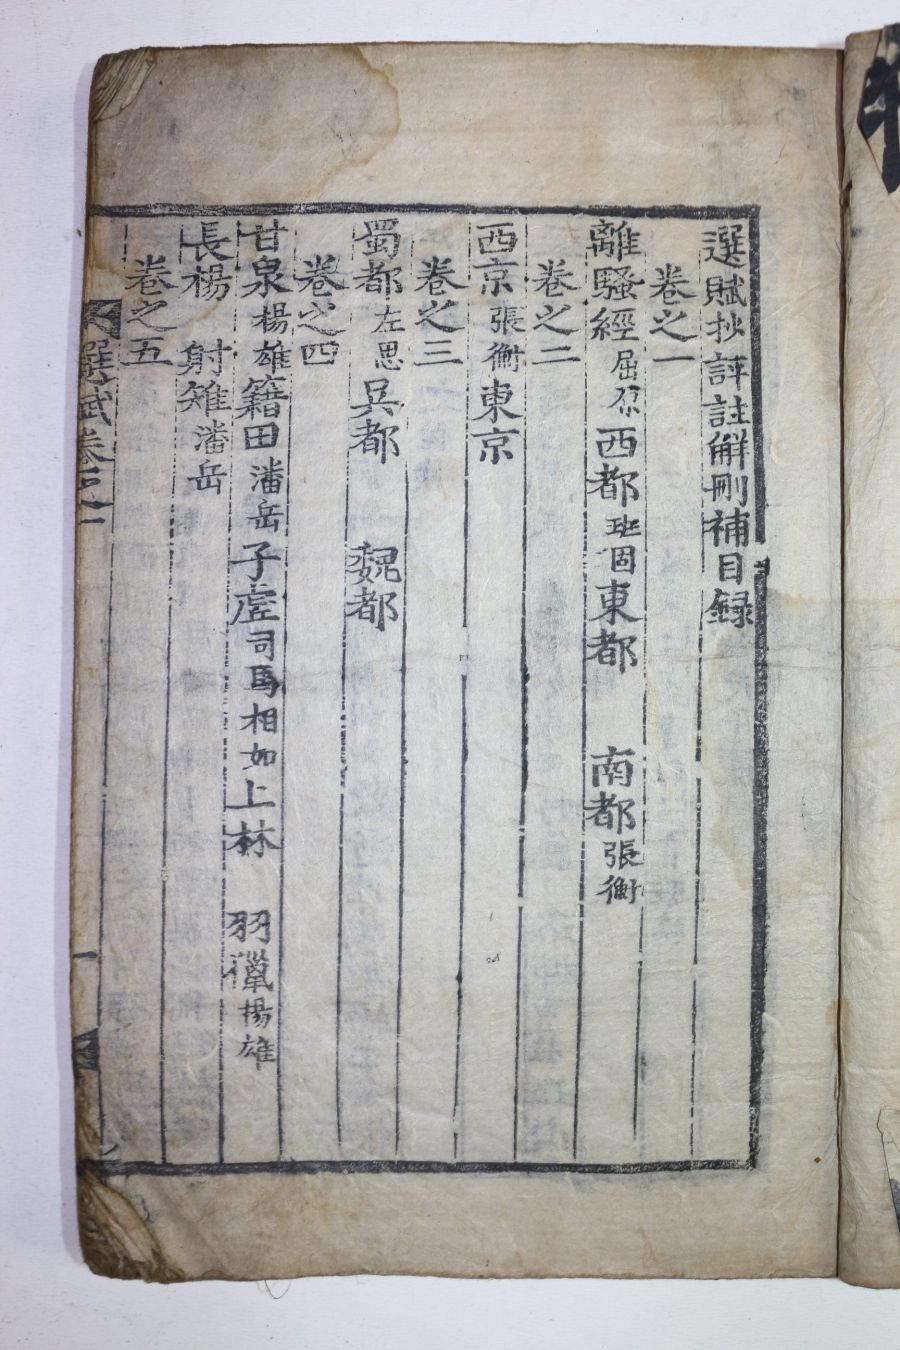 選賦抄評註解刪補目録
卷之一
離騷經 屈原 西都 班固 東都 南都 張衡
卷之二
西京 張衡 東京
卷之三
蜀都 左思 吳都 魏都
卷之四
甘泉 楊雄 籍田 潘岳 子虛 司馬相如 上林 羽獵 揚雄
長楊 射雉 潘岳
卷之五
選賦卷之一
一